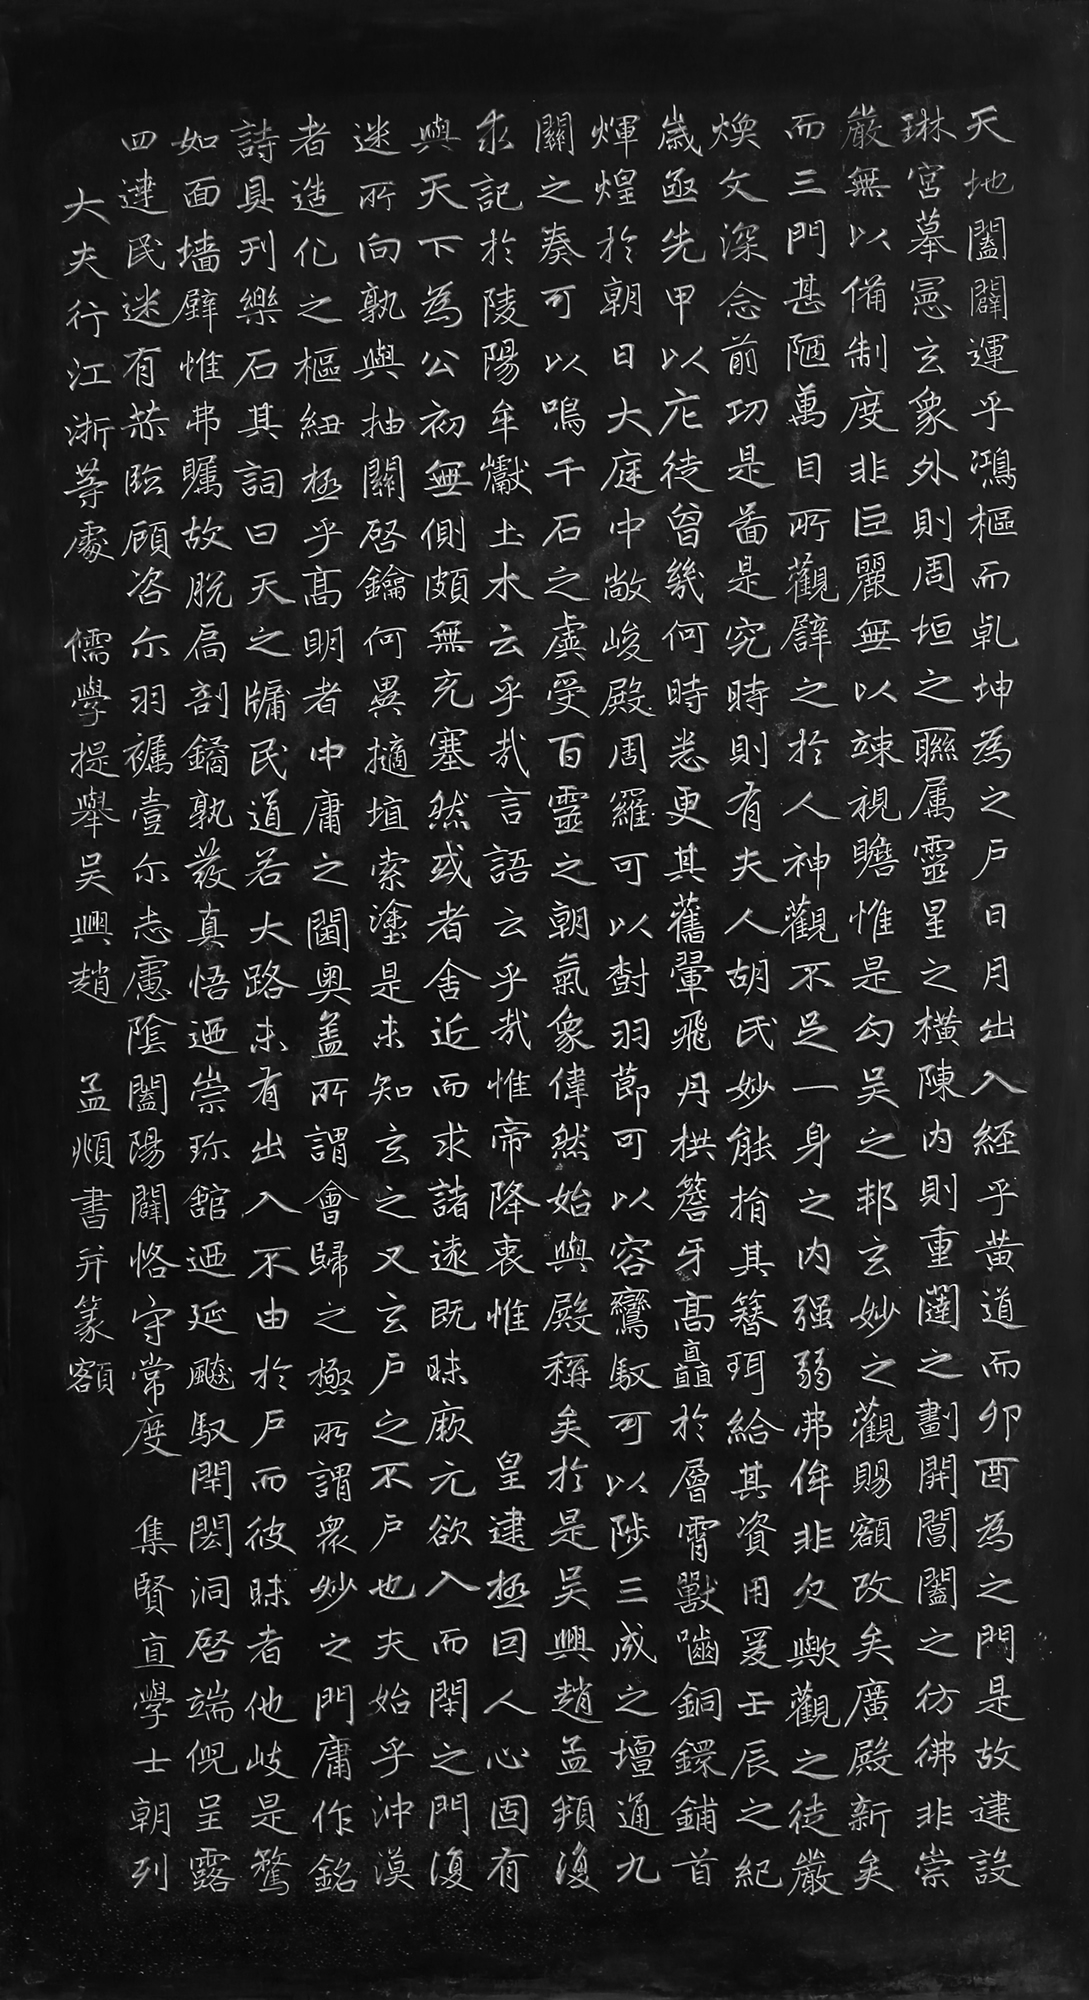 天地闔闢運乎鴻樞而乹坤為之戶日月出入經乎黃道而卯酉為之門是故建設
琳宮摹憲玄象外則周垣之聯属靈星之橫陳內則重闉之劃開閶闔之彷彿非崇
嚴無以備制度非巨麗無以竦視瞻惟是勾吴之邦玄妙之觀賜額改矣廣殿新矣
而三門甚陋萬目所觀辟之於人神觀不足一身之内强弱弗侔非欠歟觀之徒嚴
煥文深念前功是啚是究時則有夫人胡氏妙能捐其簪珥給其資用爰壬辰之紀
歲亟先甲以庀徒曾幾何時悉更其舊翬飛丹栱簷牙髙矗於層霄獸嚙銅鐶鋪首
煇煌於朝日大庭中敞峻殿周羅可以樹羽莭可以容鸞馭可以陟三成之壇通九
關之奏可以鳴千石之虡受百靈之朝氣象偉然始與殿稱矣於是吴興趙孟頫復
求記於陵陽牟巘土木云乎㢤言語云乎㢤惟帝降衷惟 皇建極囙人心固有
與天下為公初無側頗無充塞然或者舍近而求諸逺既昧厥元欲入而閉之門復
迷所向孰與抽關啓鑰何異擿埴索塗是未知玄之又玄戶之不戶也夫始乎沖漠
者造化之樞紐極乎髙明者中庸之閫奥盖所謂會歸之極所謂衆妙之門庸作銘
詩具刊樂石其詞曰天之牖民道若大路未有出入不由於戶而彼昧者他岐是騖
如面墻壁惟弗矚故脱扃剖鐍孰發真悟迺崇珎館迺延飈馭閈閎洞啓端倪呈露
四達民迷有恭臨顧咨尔羽襹壹尔志慮陰闔陽闢恪守常度 集賢直學士朝列
大夫行江浙䓁處 儒學提舉吴興趙 孟頫書并篆額